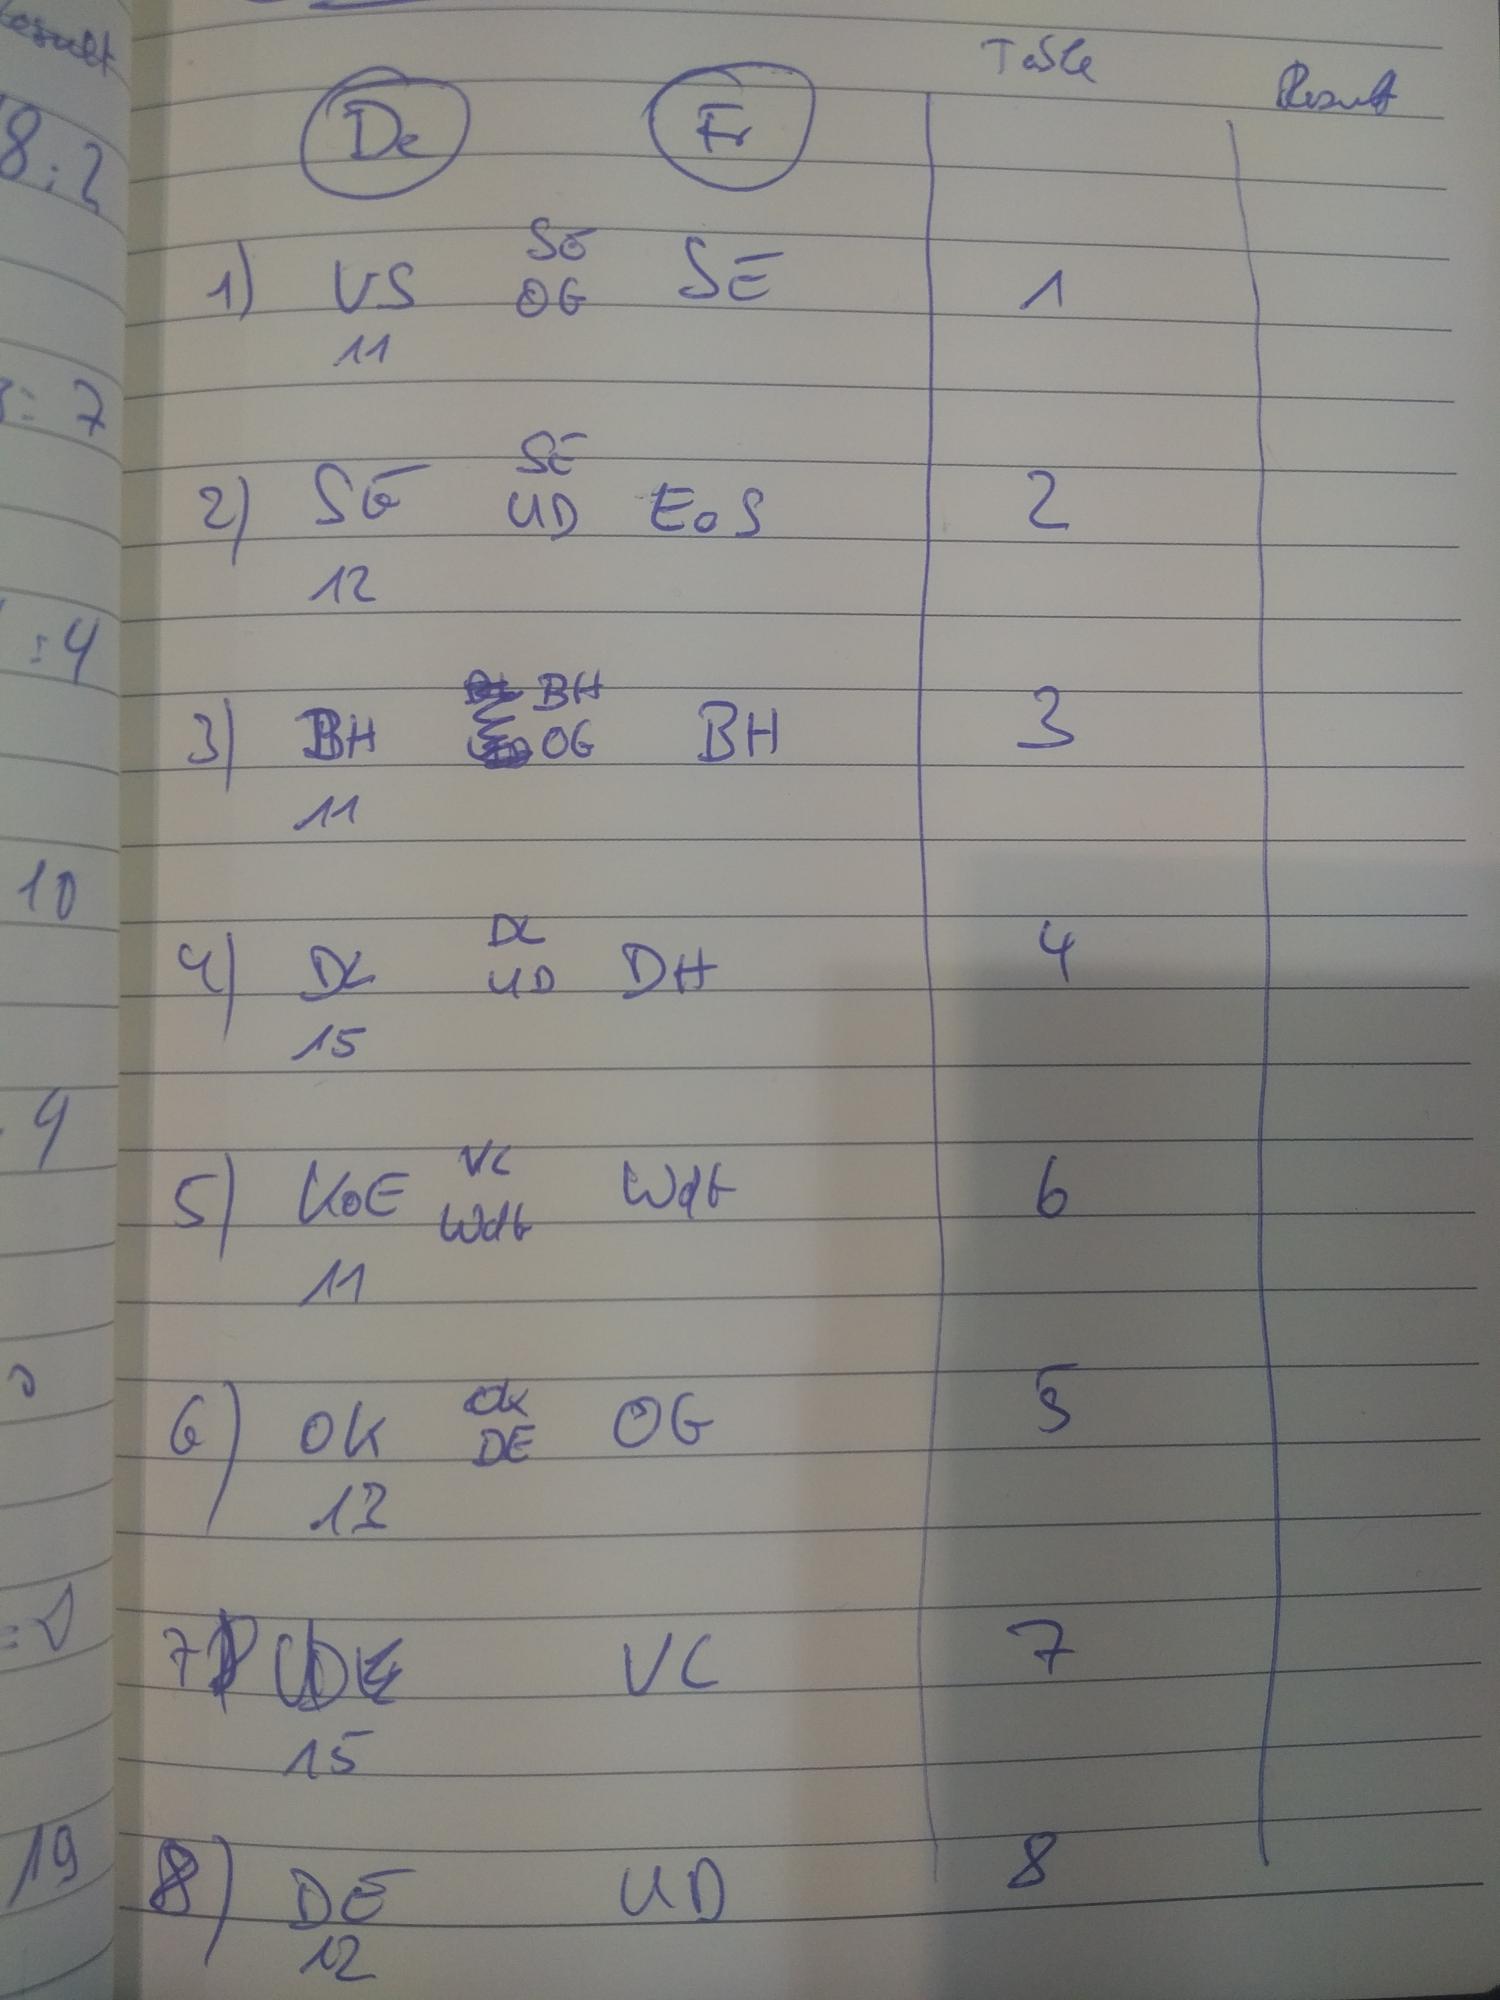 Result
8:2
De Fr Table Result
SE
1) VS OG SE 1
11
= 7
SE
2) SG UD EoS 2
12
:4
BH
3) BH OG BH 3
11
10
DL
4) DL UD DH 4
15
9
VC
5) KoE WdG WdG 6
11
OK
6) OK DE OG 5
13
7) VC 7
15
19
8) DE UD 8
12